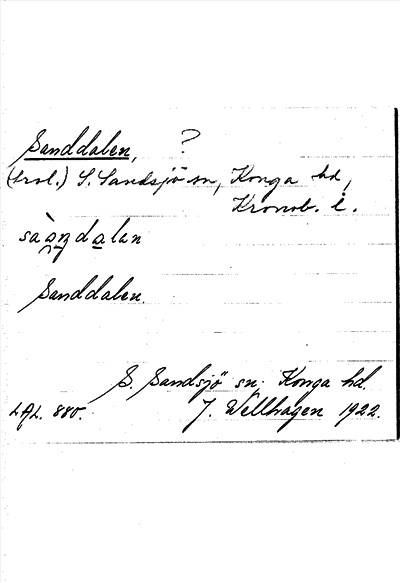 Sanddalen, ?
(trol.) S. Sandsjö sn, Konga hd,
Kronob. l.
sàandalan
Sanddalen.
S. Sandsjö sn, Konga hd.
LAL. 880. J. Wellhagen 1922.